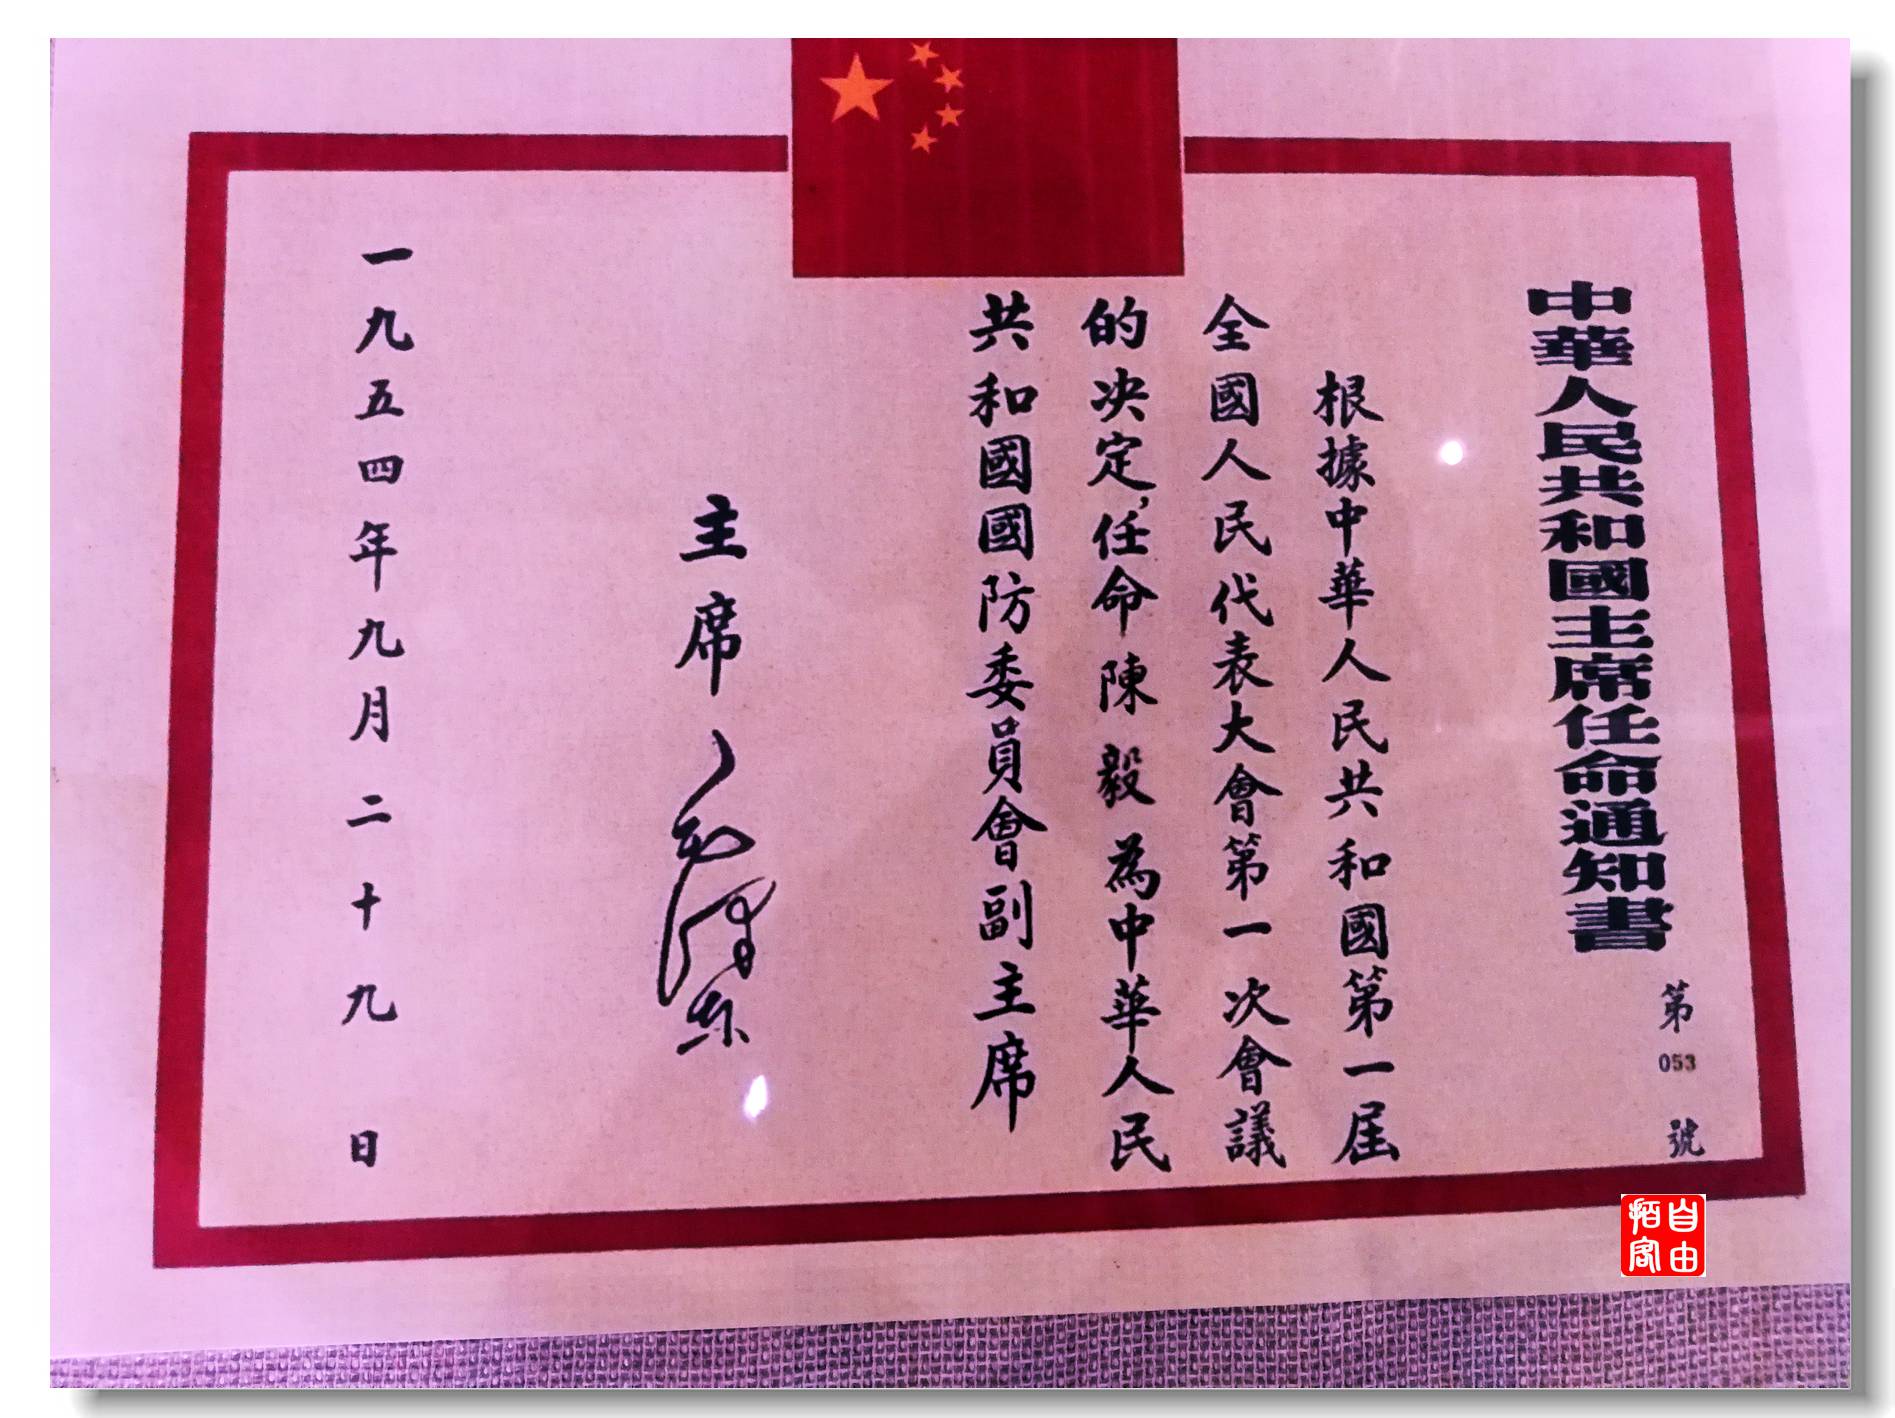 中華人民共和國主席任命通知書
第053號
根據中華人民共和國第一屆
全國人民代表大會第一次會議
的決定，任命陳毅為中華人民
共和國國防委員會副主席
主席 毛澤東
一九五四年九月二十九日
自由
陌客